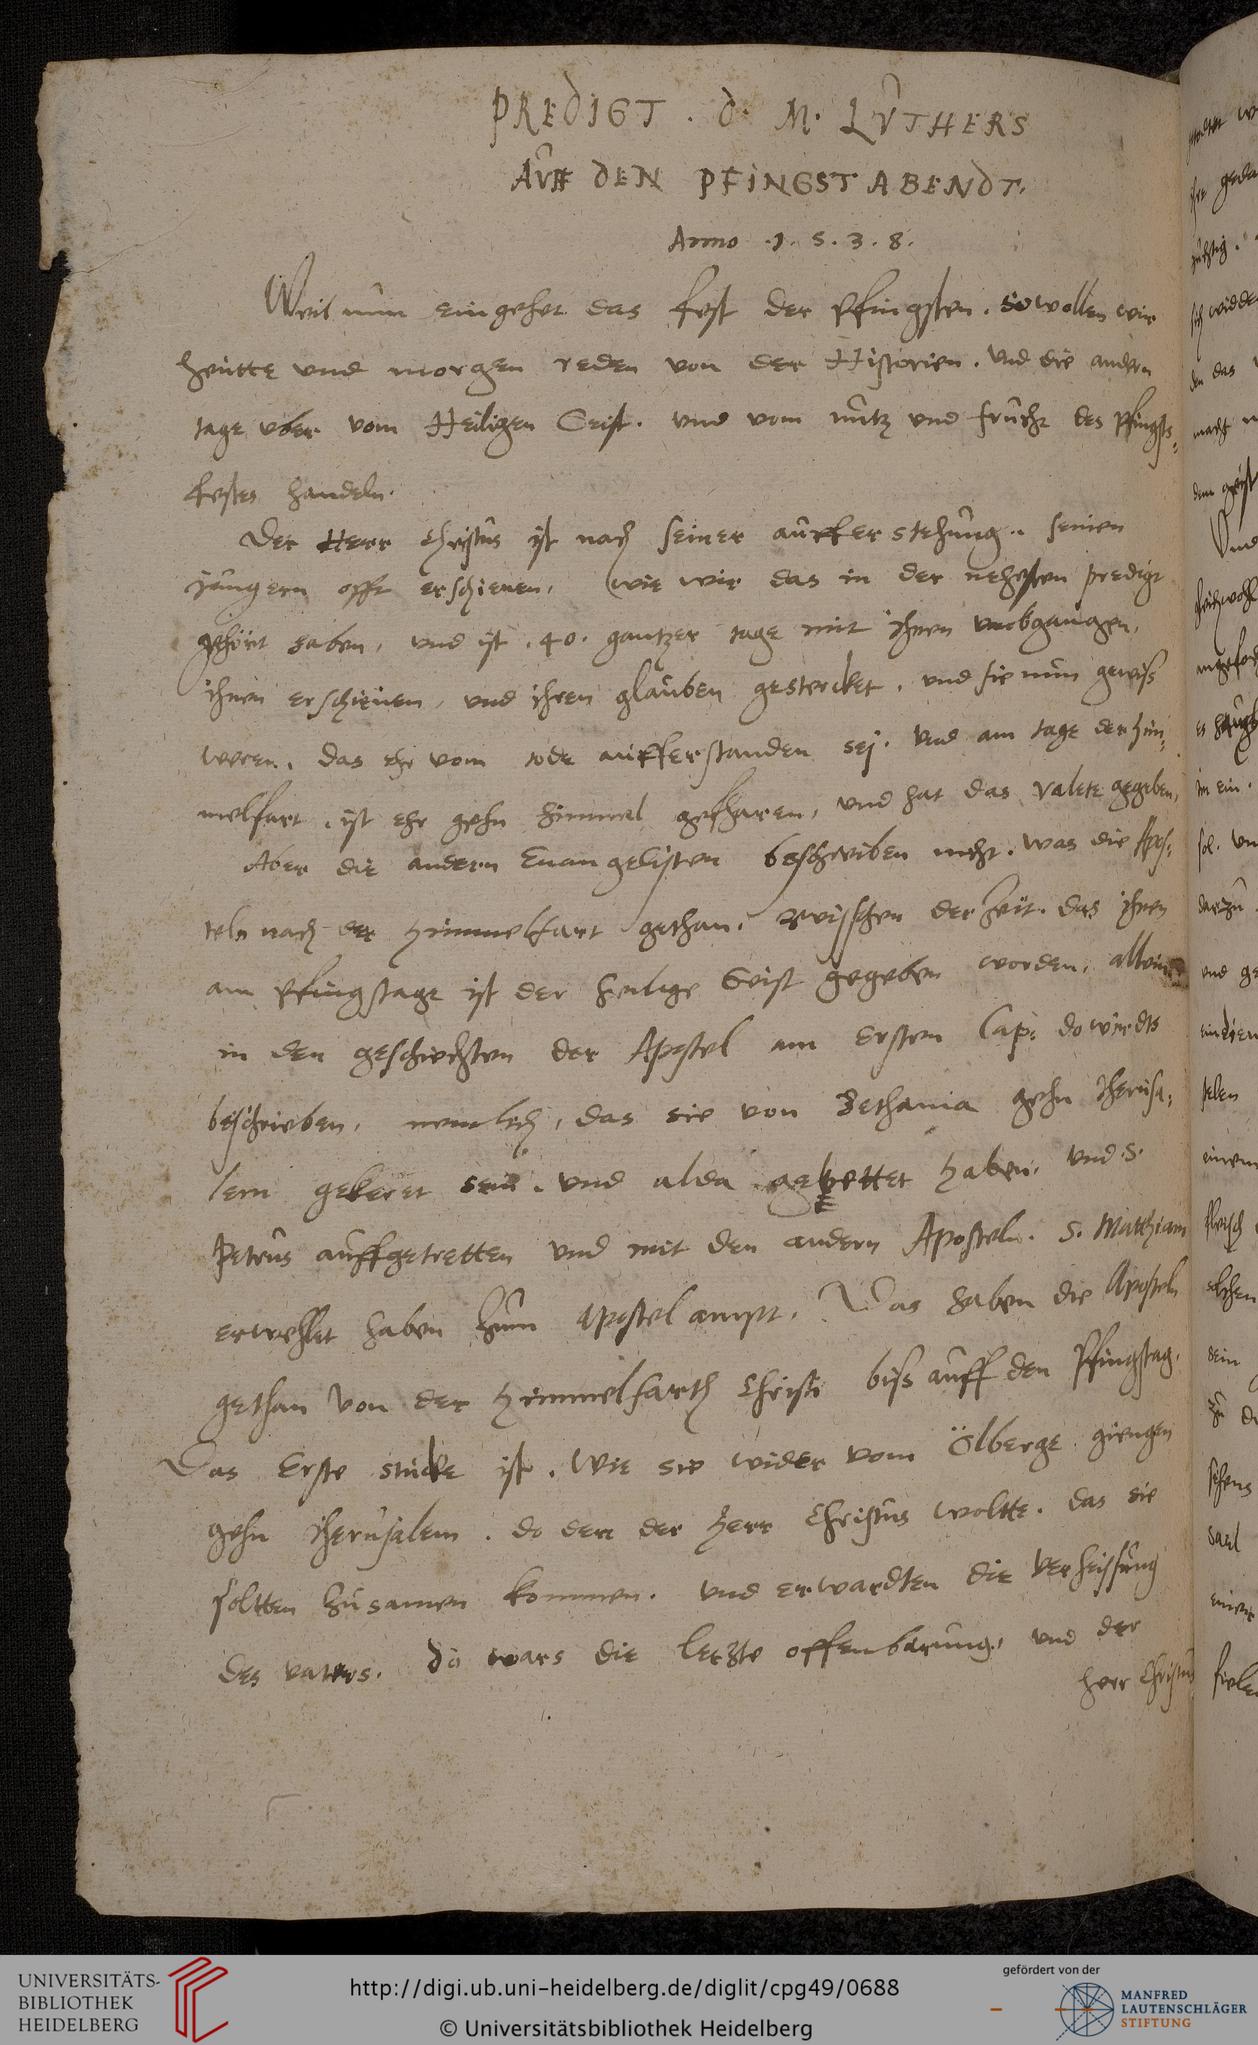 PREDIGT . D. M. LUTHERS
AUFF DEN PFINGSTABENDT.
Anno .1.5.3.8.
Weil nun eingehet das fest der Pfingsten. So wollen wir
heutte vnd morgen reden von der Historien. Vnd die andern
tage vber vom Heiligen Geist. vnd vom nutz vnd frucht des Pfingst-
festes handeln.
Der Herr Christus ist nach seiner aufferstehung. seinen
jungern offt erschienen, wie wir das in der nehesten predigt
gehört haben, vnd ist .40. gantzer tage mit ihnen vmbgangen,
ihnen erschienen, vnd ihren glauben gestercket, vnd sie nun gewiss
weren, das ehr vom tode aufferstanden sej. Vnd am tage der him-
melfart, ist ehr gehn himmel gefharen, vnd hat das Valete gegeben,
Aber die andern Euangelisten beschreiben nicht. was die Apos-
teln nach der himmelfart gethan. zwisschen der zeit. das ihnen
am Pfingstage ist der heilige Geist gegeben worden, allein
in den geschichten der Apostel am ersten Cap: do wirdts
beschrieben, nemlich, das sie von Bethania gehn Iherusa-
lem gekeret sein. vnd alda gebettet haben. vnd .S.
Petrus auffgetretten vnd mit den andern Aposteln. S. Matthiam
erwehlet haben zum Apostel ampt. Das haben die Aposteln
gethan von der himmelfarth Christi biss auff den Pfingstag.
Das Erste stucke ist. Wie sie wider vom Ölberge giengen
gehn Iherusalem. do den der herr Christus woltte. das sie
soltten zusamen kommen. vnd erwardten die verheissung
des vaters. Do wars die letzte offenbarung, vnd der
herr Christus
UNIVERSITÄTS-
BIBLIOTHEK
HEIDELBERG
http://digi.ub.uni-heidelberg.de/diglit/cpg49/0688
© Universitätsbibliothek Heidelberg
gefördert von der
MANFRED
LAUTENSCHLÄGER
STIFTUNG